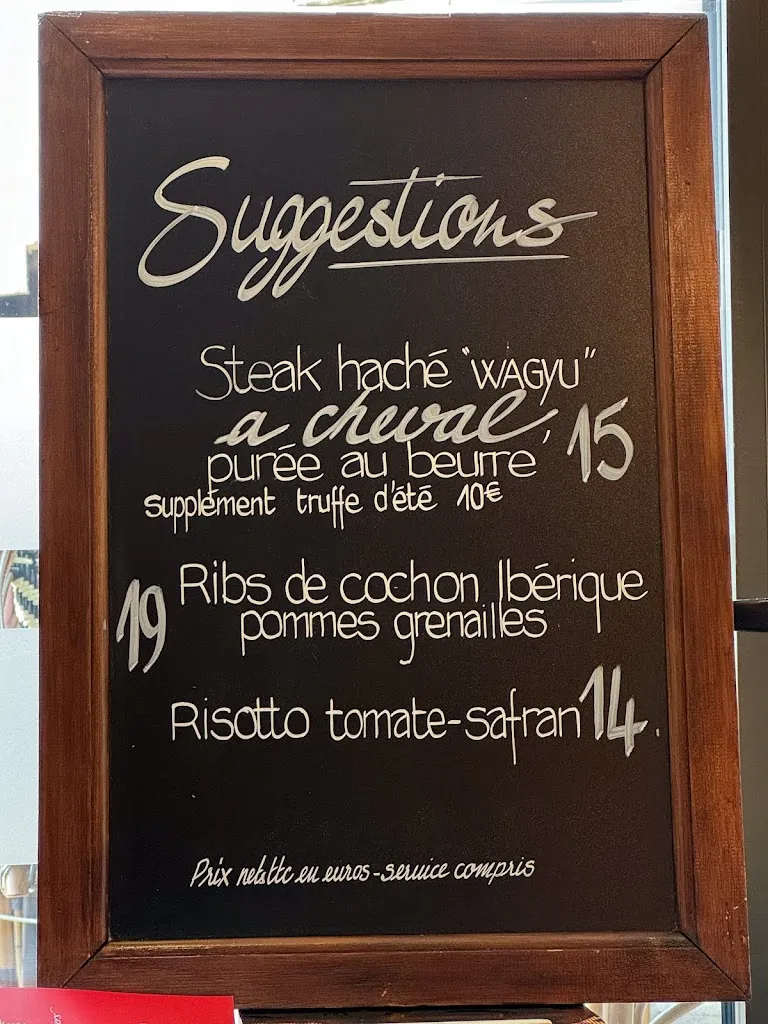 Suggestions
Steak haché "WAGYU"
a cheval,
purée au beurre 15
supplément truffe d'été 10€
19 Ribs de cochon Ibérique
pommes grenailles
Risotto tomate-safran 14.
Prix nets ttc en euros - service compris